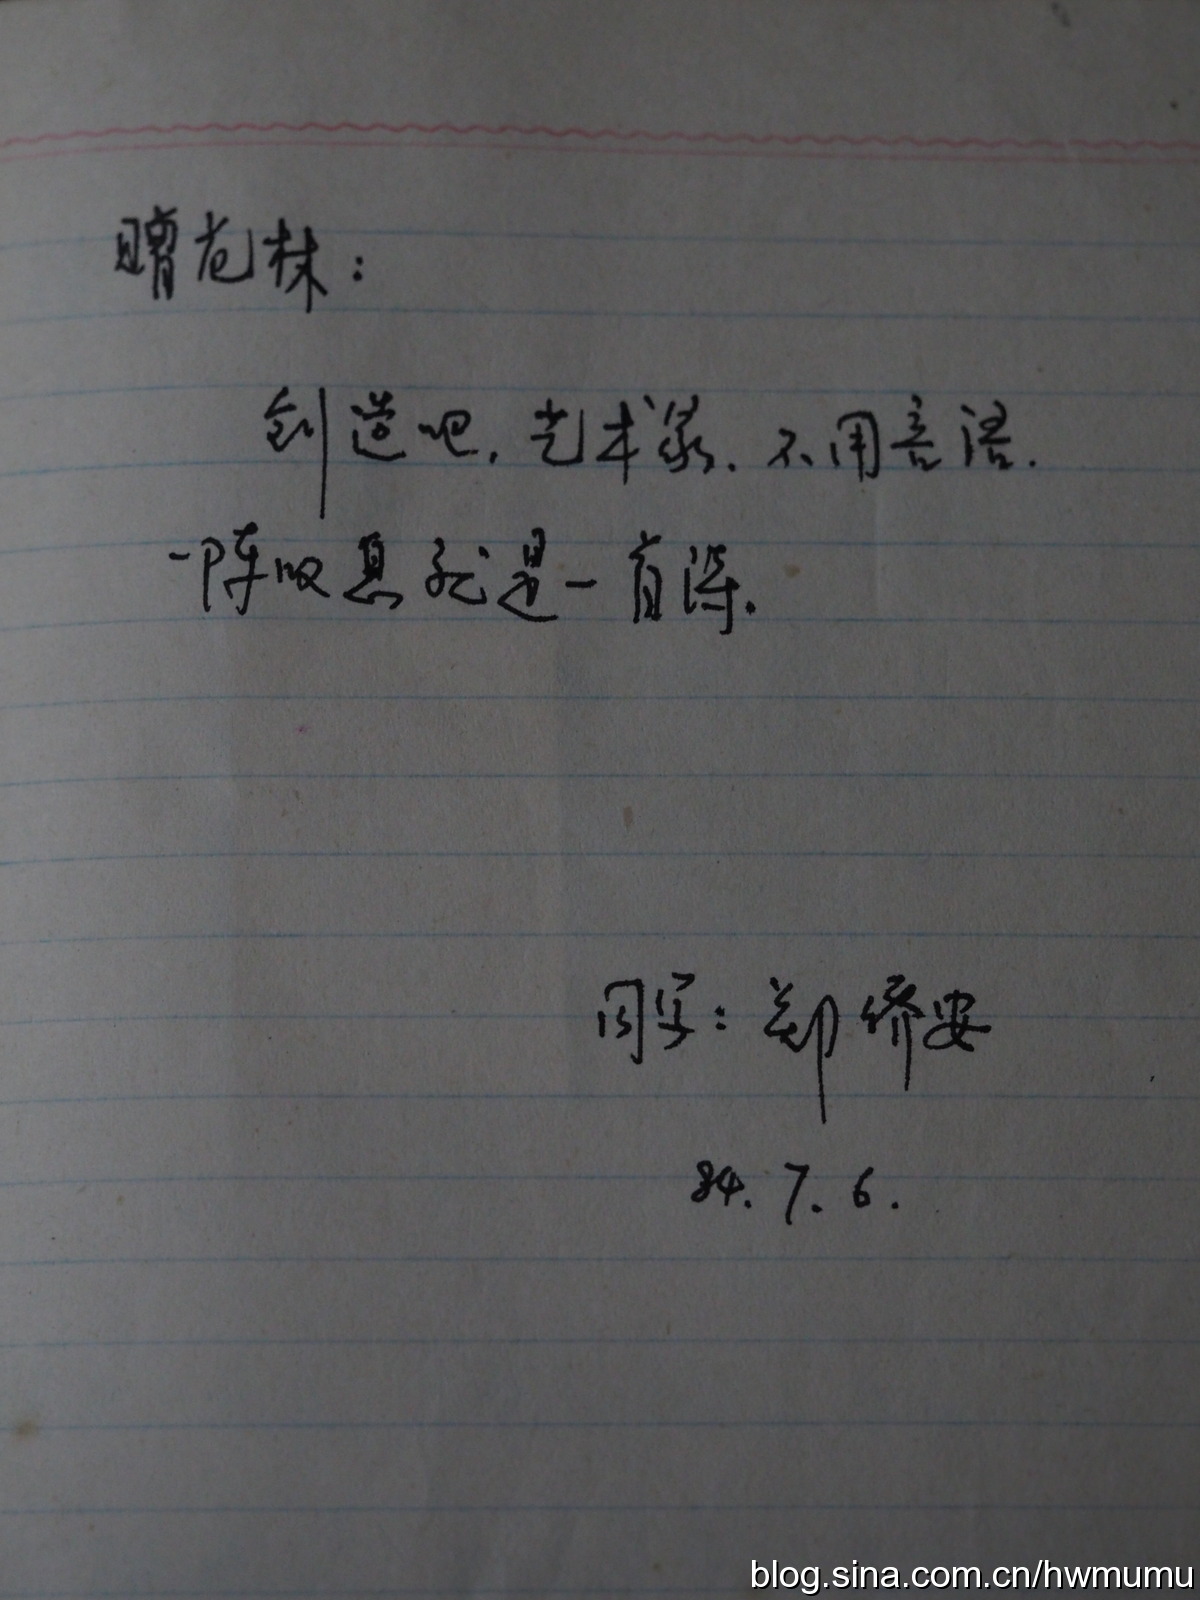 赠花林：
创造吧，艺术家．不用言语．
一阵叹息就是一首诗．
同学：郑侨安
84.7.6.
blog.sina.com.cn/hwmumu